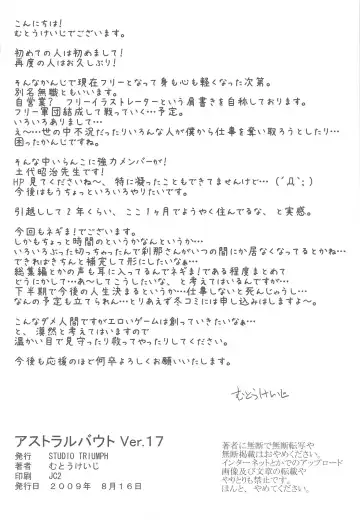 こんにちは!
むとうけいじでございます。
初めての人は初めまして!
再度の人はお久しぶり!
そんなかんじで現在フリーとなって身も心も軽くなった次第。
別名無職ともいいます。
自営業? フリーイラストレーターという肩書きを自称しております。
フリー軍団結成して戦っていく…予定。
いろいろありまして…
え〜…世の中不況だったりいろんな人が僕から仕事を奪い取ろうとしたり…
困ったかんじですね。
そんな中いらんこに強力メンバーが!
土代昭治先生です!
HP見てくださいね〜、特に凝ったこともできてませんけど…(´Д`;)
今後はもうちょっといろいろやりたいです。
引越しして2年くらい、ここ1ヶ月でようやく住んでるな、と実感。
今回もネギま!でございます。
しかもちょっと時間のというかなんというか…
いろいろぶった切っちゃたんで刹那さんがいつの間にか居なくなってるとかね…
できればきちんと補完して形にしたいなぁ…
総集編とかの声も耳に入ってるんでネギま!である程度まとめて
どうにかして…あ〜してこうしたいな、と考えてはいるんですが…
下半期で今後の人生決まるというか…仕事しないと死んじゅうし…
なんの予定も立てられん…とりあえず冬コミには申し込みはしますよ〜。
こんなダメ人間ですがエロいゲームは創っていきたいなぁ…
と、漠然と考えてはいますので
温かい目で見守ったり救ってやったりしてください。
今後も応援のほど何卒よろしくお願いいたします。
むとうけいじ
アストラルバウト Ver.17
発行 STUDIO TRIUMPH
著者 むとうけいじ
印刷 JC2
発行日 2009年 8月16日
著者に無断で無断転写や
無断掲載はおやめください。
インターネットとかでのアップロード
画像及び文章の転載や
やりとりも禁止です。
ほんと、やめてください。